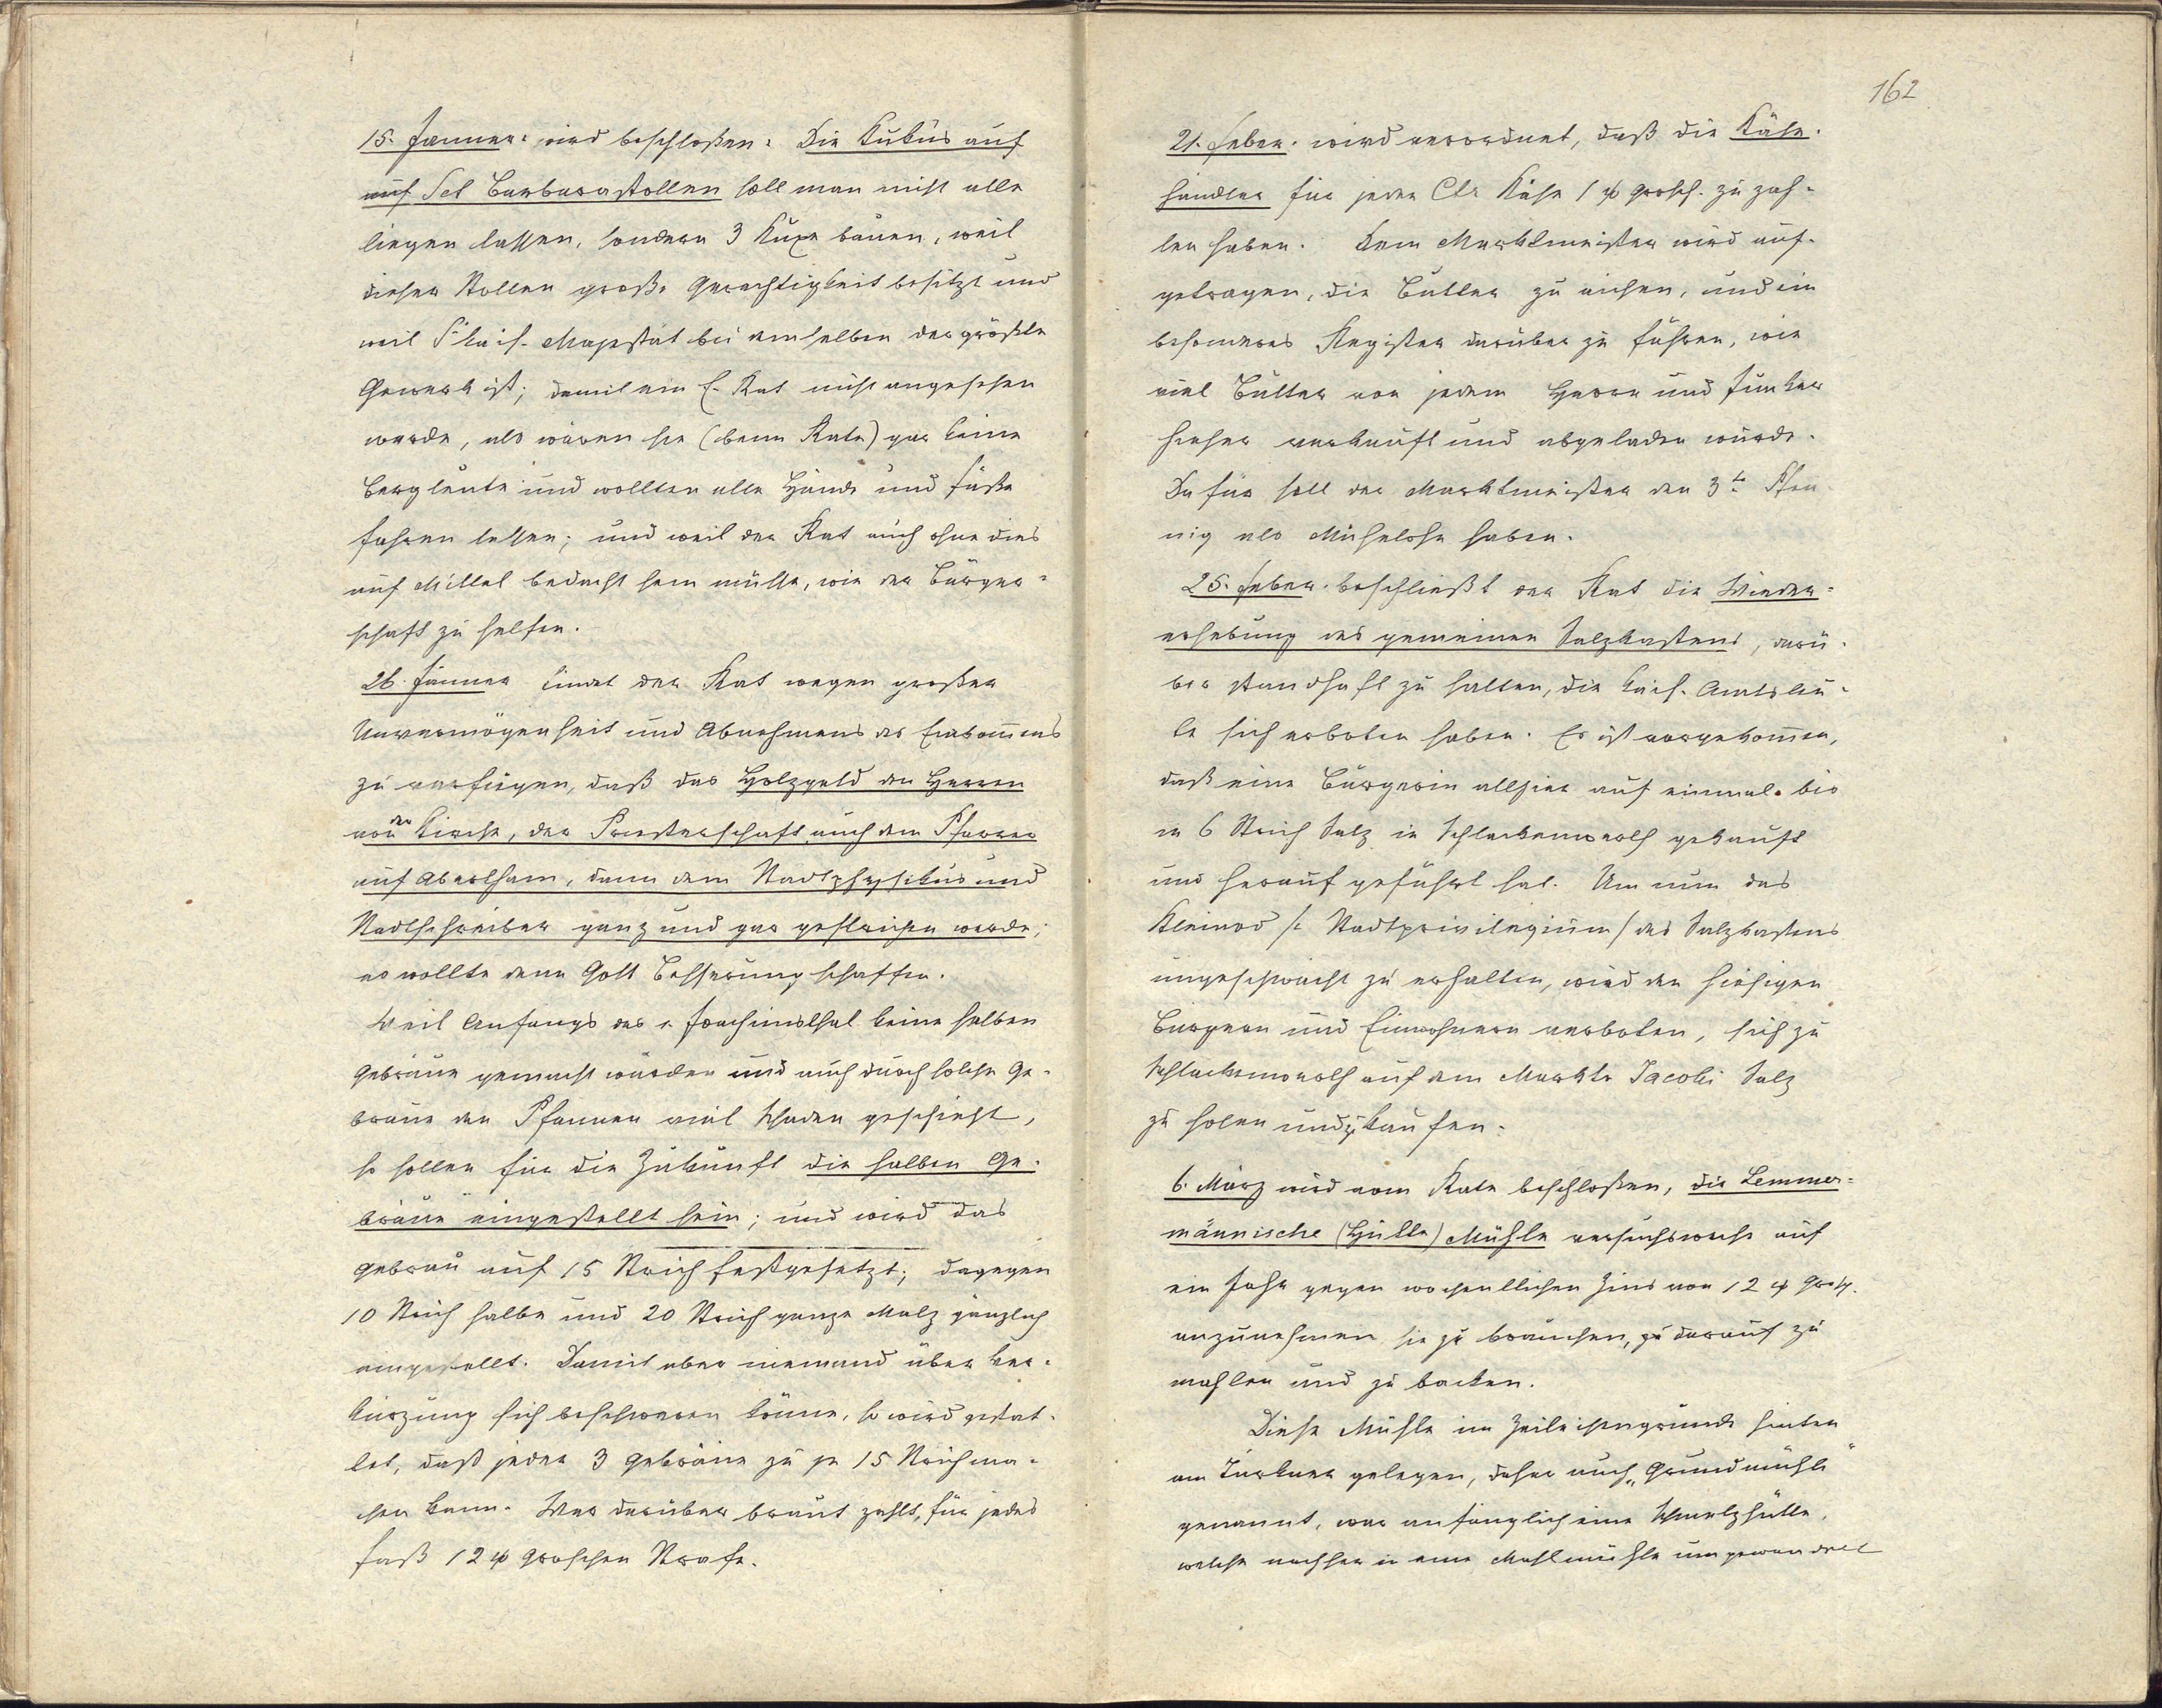 15. Jänner: wird beschloßen: Die Kukus auf
auf Sct Barbarastollen soll man nicht alle
liegen lassen, sondern 3 Kuxe bauen, weil
dieser Stollen große Gerechtigkeit besitzt und
weil Sr kais. Majestät bei demselben der größte
Gewerk ist; damit ein E. Rat nicht angesehen
werde, als wären sie (beim Rate) gar keine
Bergleute und wollten alle Hände und Füße
fahren lassen; und weil der Rat auch ohne dies
auf Mittel bedacht sein müsse, wie der Bürger-
schaft zu helfen.
26. Jänner findet der Rat wegen großer
Unvermögenheit und Abnehmens des Einkom̄ens
zu verfügen, daß das Holzgeld den Herren
von der Kirche, der Priesterschaft auch dem Pfarrer
auf Abertham, dann dem Stadtphysikus und
Stadtschreiber ganz und gar gestrichen werde;
es wollte denn Gott Besserung schaffen.
Weil Anfangs des s. Joachimsthal keine halben
Gebräue gemacht wurden und auch durch solche Ge-
bräue den Pfannen viel Schaden geschieht,
so sollen für die Zukunft die halben Ge-
bräue eingestellt sein; und wird das
Gebräu auf 15 Strich festgesetzt; dagegen
10 Strich halbe und 20 Strich ganze Malz gänzlich
eingestellt. Damit aber niemand über Ver-
kürzung sich beschweren könne, so wird gestat-
tet, daß jeder 3 Gebräue zu je 15 Strich ma-
chen kann. Wer darüber braut zahlt, für jedes
Faß 12 w groschen Strafe.
162
21. Feber. wird verordnet, daß die Käse-
händler für jeden Ctr Käse 1 w grosch. zu zah-
len haben. Dem Marktmeister wird auf-
getragen, die Butter zu eichen, und ein
besonderes Register darüber zu führen, wie
viel Butter von jedem Herrn und Junker
hieher verkauft und abgeladen wurde.
Dafür soll der Marktmeister den 3te Pfen-
nig als Mühelohn haben.
25. Feber. beschließt der Rat die Wieder-
erhebung des gemeinen Salzkastens, darü-
ber standhaft zu halten, die kais. Amtsleu-
te sich erboten haben. Es ist vorgekom̄en,
daß eine Bürgerin allhier auf einmal bis
in 6 Strich Salz in Schlackenwerth gekauft
und herauf geführt hat. Um nun das
Kleinod /: Stadtprivilegium / des Salzkastens
ungeschwächt zu erhalten, wird den hiesigen
Bürgern und Einwohnern verboten, sich zu
Schlackenwerth auf dem Markte Jacobi Salz
zu holen und zu kaufen.
6. März wird vom Rate beschloßen, die Lemmer-
männische (Hütte) Mühle versuchsweise auf
ein Jahr gegen wochentlichen Zins von 12 w Grosch.
anzunehmen sie zu brauchen, zu darauf zu
mahlen und zu backen.
Diese Mühle im Zeileisengrunde hinten
am Türkner gelegen, daher auch „Grundmühle"
genannt, war anfänglich eine Schmelzhütte,
welche nachher in eine Mahlmühle umgewandelt